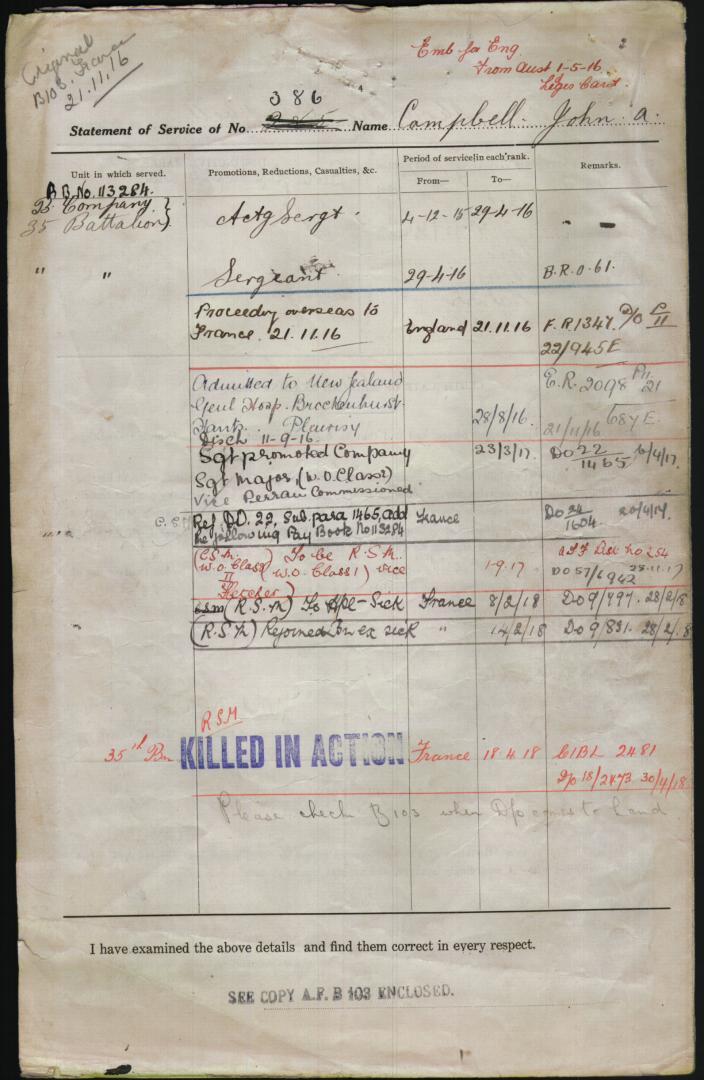 Original
B103. France
21.11.16
Emb for Eng
From Aust 1-5-16
2
386
Statement of Service of No. Name Campbell. John. A.
Unit in which served. Promotions, Reductions, Casualties, &c. Period of service in each rank. Remarks.
From— To—
A B. No. 113284.
B Company }
35 Battalion } Actg Sergt. 4-12-15 29-4-16
" " Sergeant. 29-4-16 B.R.O. 61.
Proceedg overseas to
France. 21.11.16 England 21.11.16 F.R.1347. D/O
22/945E
Admitted to New Zealand E.R. 2098
Genl Hosp. Brockenhurst
Hants. Pleurisy 28/8/16. 21/11/16 687 E.
Disch 11-9-16.
Sgt promoted Company 23/3/17. DO 22/1465 6/4/17.
Sgt Major, (W.O. Class 2)
Vice Perrau Commissioned
Ref DO. 22, Sub. para 1465, add France DO 24/1604. 20/4/17.
the following Pay Book No 113284
(C.S.M. ) To be R.S.M.
W.O. Class II (W.O. Class 1) vice 1-9.17 DO 57/6942 28.11.17
Fletcher)
(R.S.M) To Hpl - Sick France 8/2/18 DO 9/797. 28/2/18
(R.S.M) Rejoined Bn ex sick " 14/2/18 DO 9/831. 28/2/18
RSM
35th Bn KILLED IN ACTION France 18.4.18 C/BL 2481
D/O 18/2473 30/4/18
Please check B103 when D/O comes to hand
I have examined the above details and find them correct in every respect.
SEE COPY A.F. B 103 ENCLOSED.